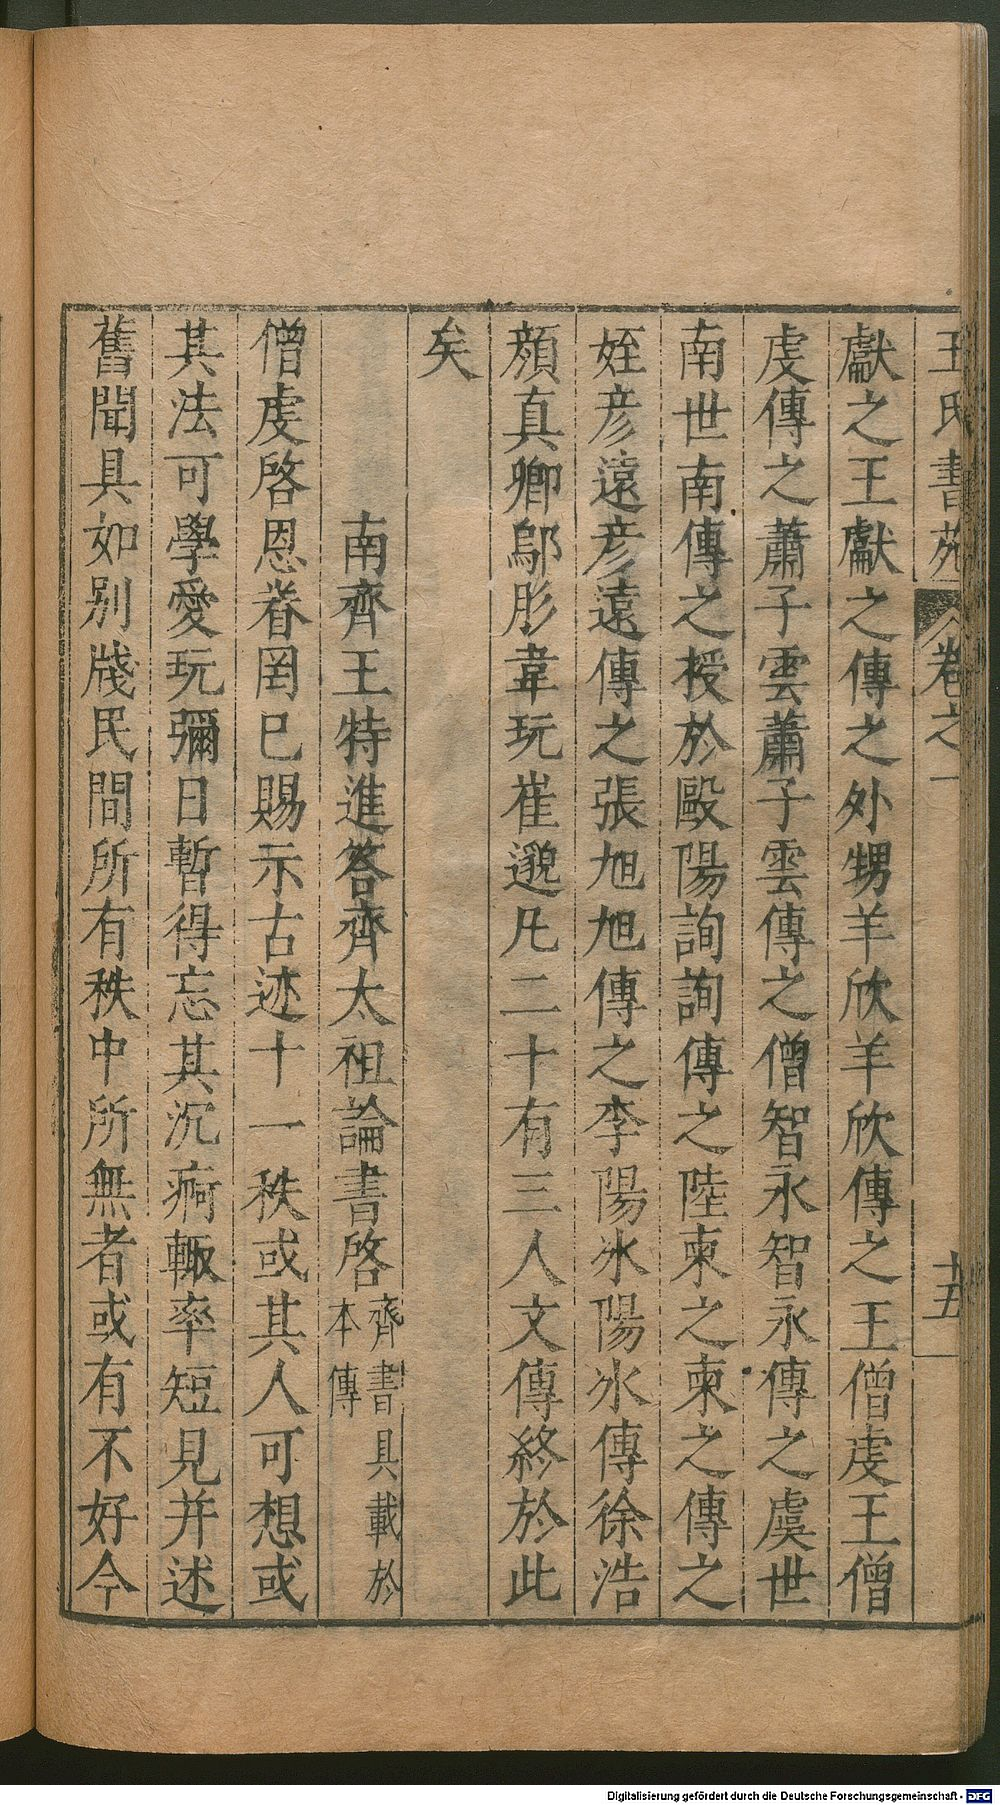 王氏書苑 卷之一 十五
獻之王獻之傳之外甥羊欣羊欣傳之王僧虔王僧
虔傳之蕭子雲蕭子雲傳之僧智永智永傳之虞世
南世南傳之授於歐陽詢詢傳之陸柬之柬之傳之
姪彦遠彦遠傳之張旭旭傳之李陽氷陽氷傳徐浩
顔真卿鄔彤韋玩崔邈凡二十有三人文傳終於此
矣
南齊王特進答齊太祖論書啓 齊書具載於本傳
僧虔啓恩眷罔已賜示古迹十一秩或其人可想或
其法可學愛玩彌日暫得忘其沉痾輙率短見并述
舊聞具如别牋民間所有秩中所無者或有不好今
Digitalisierung gefördert durch die Deutsche Forschungsgemeinschaft - DFG